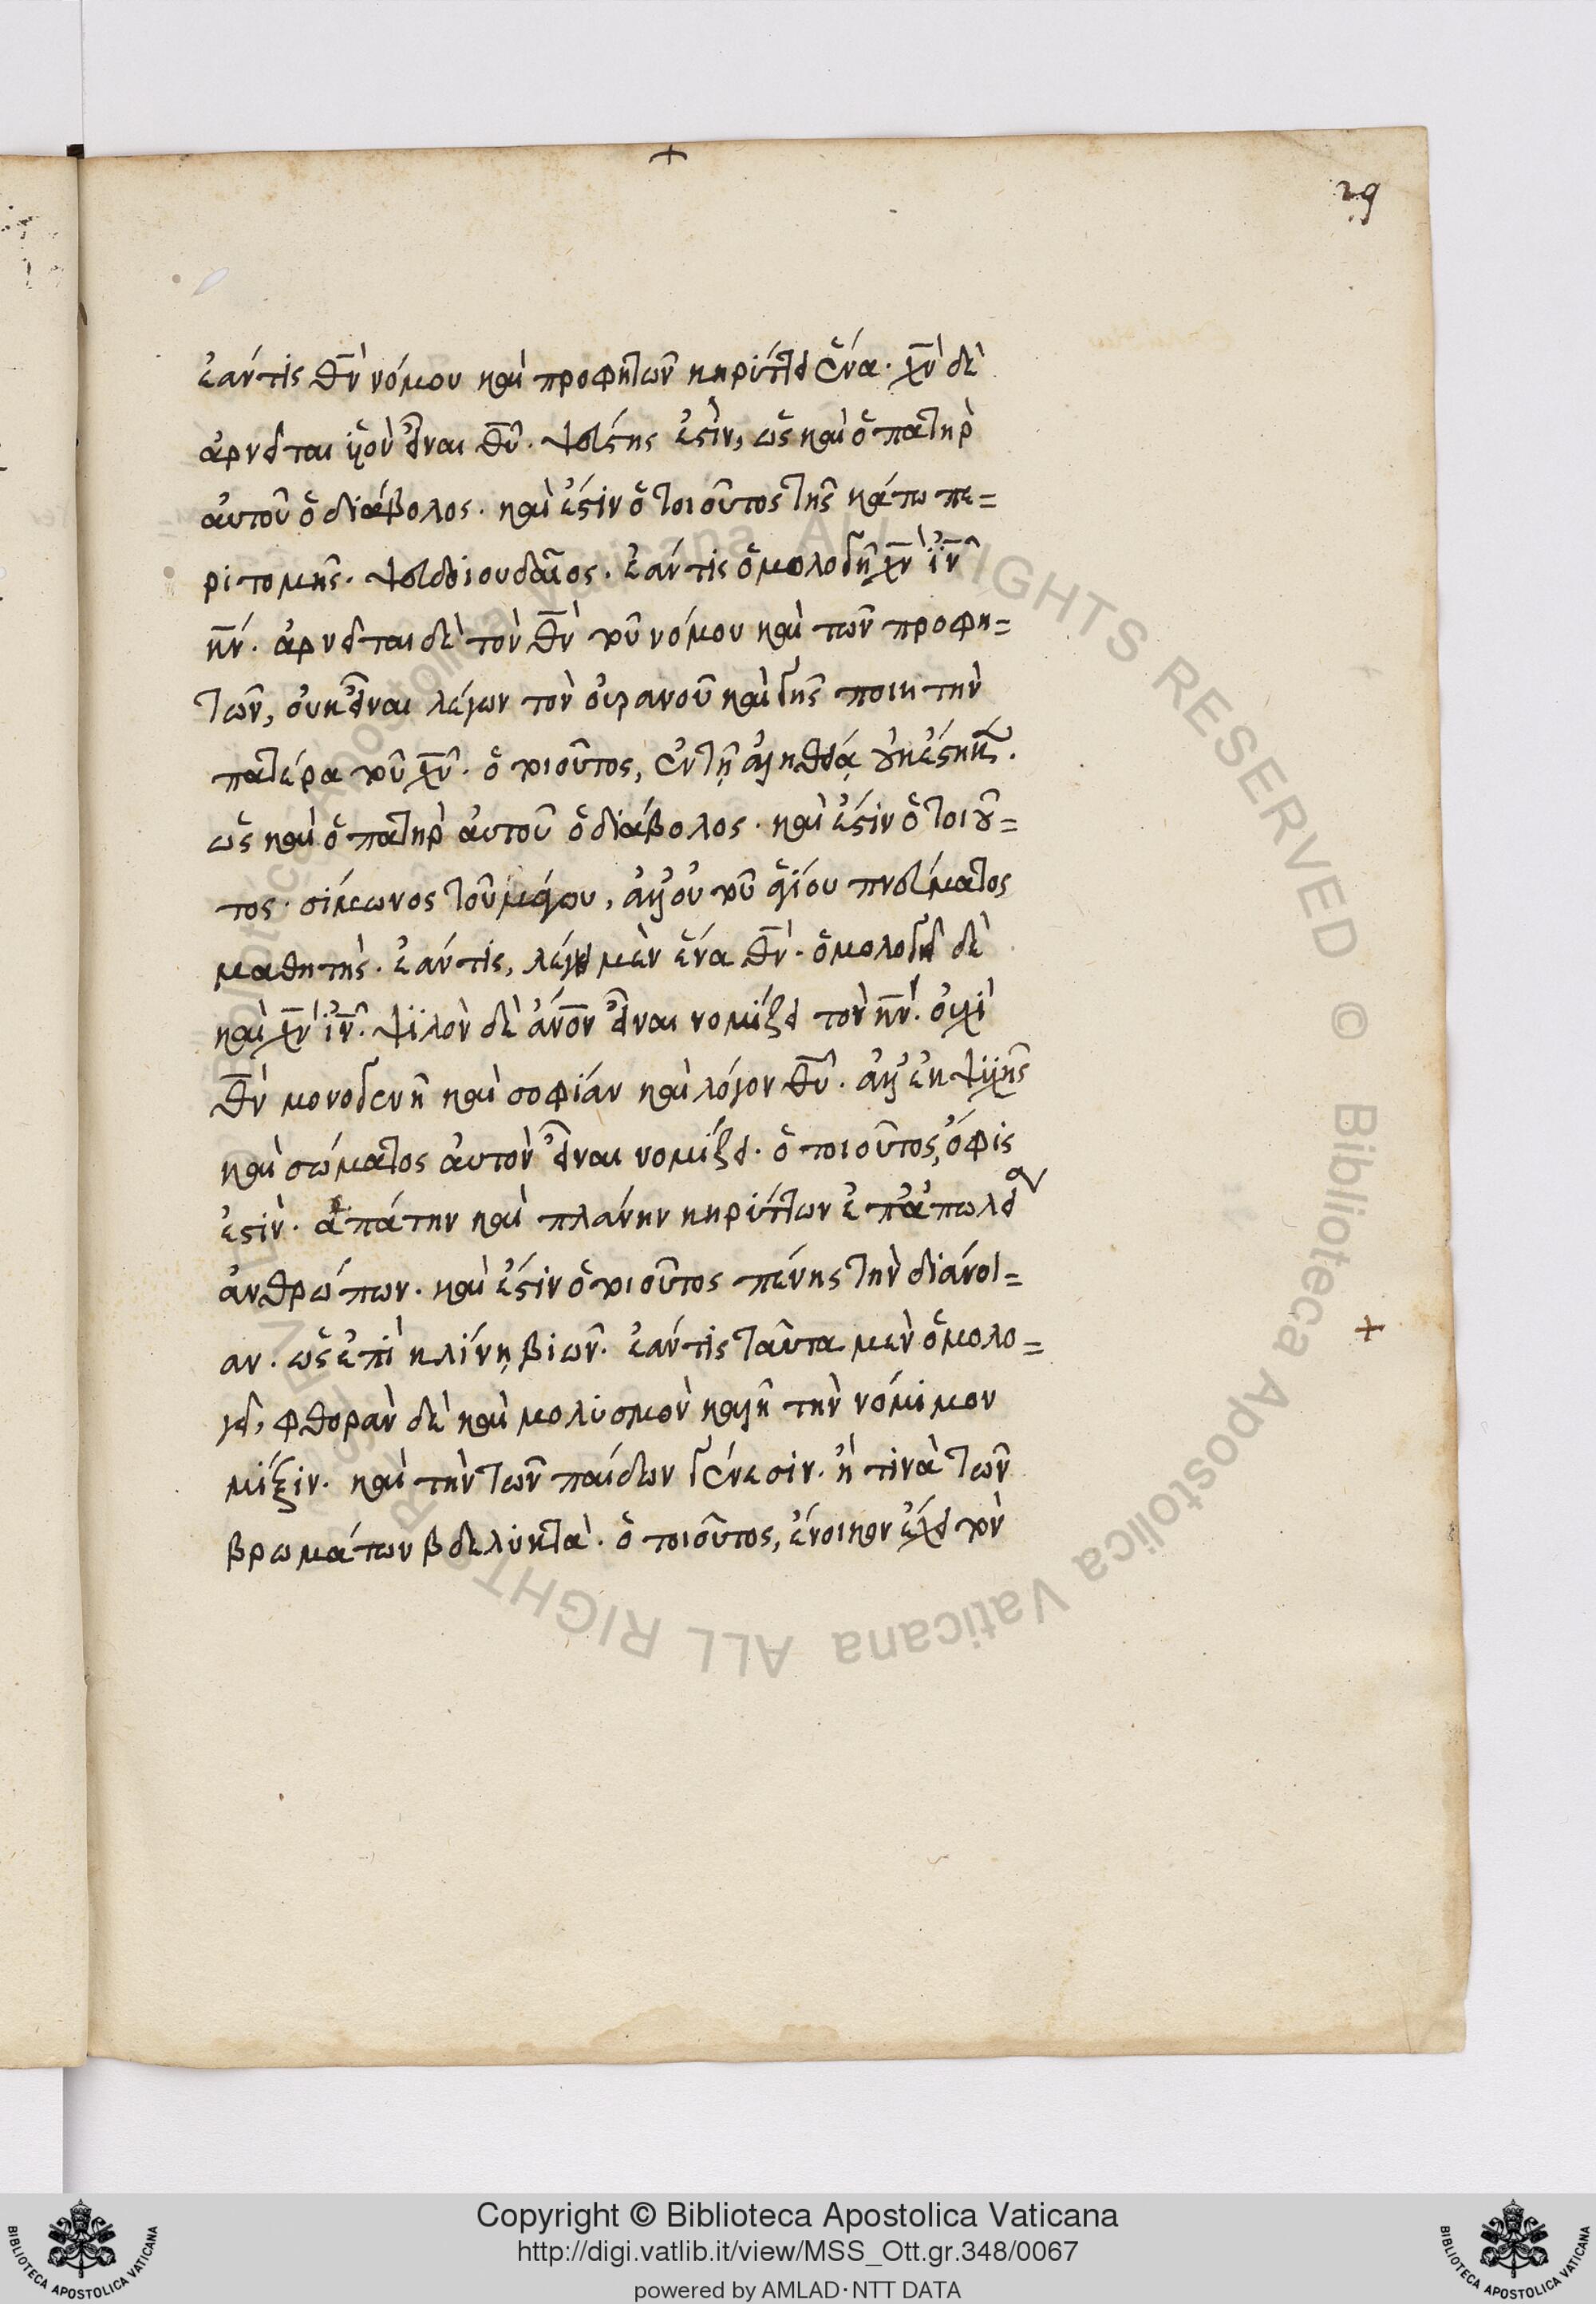 29
ἐάν τις θν̅ νόμου καὶ προφητῶν κηρύττει ἕνα. χν̅ δὲ
ἀρνεῖται υἱὸν εἶναι θυ̅. ψεύστης ἐστὶν, ὡς καὶ ὁ πατὴρ
αὐτοῦ ὁ διάβολος. καὶ ἔστιν ὁ τοιοῦτος τῆς κάτω πε=
ριτομῆς. ψευδοιουδαῖος. ἐάν τις ὁμολογῇ χν̅ ιν̅
κν̅. ἀρνεῖται δὲ τὸν θν̅ τοῦ νόμου καὶ τῶν προφη=
τῶν, οὐκ εἶναι λέγων τὸν οὐρανοῦ καὶ γῆς ποιητὴν
πατέρα τοῦ χυ̅. ὁ τοιοῦτος, ἐν τῇ ἀληθείᾳ οὐχ ἕστηκεν.
ὡς καὶ ὁ πατὴρ αὐτοῦ ὁ διάβολος. καὶ ἔστιν ὁ τοιοῦ=
τος. σίμωνος τοῦ μάγου, ἀλλ' οὐ τοῦ ἁγίου πνεύματος
μαθητής. ἐάν τις, λέγει μὲν ἕνα θν̅. ὁμολογεῖ δὲ
καὶ χν̅ ιν̅. ψιλὸν δὲ ἄνο̅ν εἶναι νομίζει τὸν κν̅. οὐχὶ
θν̅ μονογενῆ καὶ σοφίαν καὶ λόγον θυ̅. ἀλλ' ἐκ ψυχῆς
καὶ σώματος αὐτὸν εἶναι νομίζει. ὁ τοιοῦτος, ὄφις
ἐστὶν. ἀπάτην καὶ πλάνην κηρύττων ἐπ' ἀπωλείᾳ
ἀνθρώπων. καὶ ἔστιν ὁ τοιοῦτος πένης τὴν διάνοι=
αν. ὡς ἐπὶ κλίνῃ βιῶν. ἐάν τις ταῦτα μὲν ὁμολο=
γεῖ, φθορὰν δὲ καὶ μολυσμὸν καλῇ τὴν νόμιμον
μίξιν. καὶ τὴν τῶν παίδων γένεσιν. ἤ τινα τῶν
βρωμάτων βδελυκτά. ὁ τοιοῦτος, ἔνοικον ἔχει τὸν
Copyright © Biblioteca Apostolica Vaticana
http://digi.vatlib.it/view/MSS_Ott.gr.348/0067
powered by AMLAD·NTT DATA
BIBLIOTECA APOSTOLICA VATICANA
BIBLIOTECA APOSTOLICA VATICANA